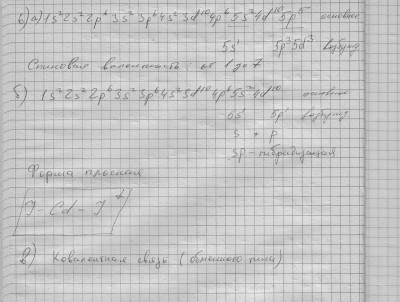 б) а) 1s²2s²2p⁶3s²3p⁶4s²3d¹⁰4p⁶5s²4d¹⁰5p⁵ основное
5s¹ 5p³5d³ возбужд
Спиновая валентность: от 1 до 7
б) 1s²2s²2p⁶3s²3p⁶4s²3d¹⁰4p⁶5s²4d¹⁰ основное
5s¹ 5p¹ возбужд
s + p
sp-гибридизация
Форма плоская
[J-Cd-J]
в) Ковалентная связь (обменного типа)